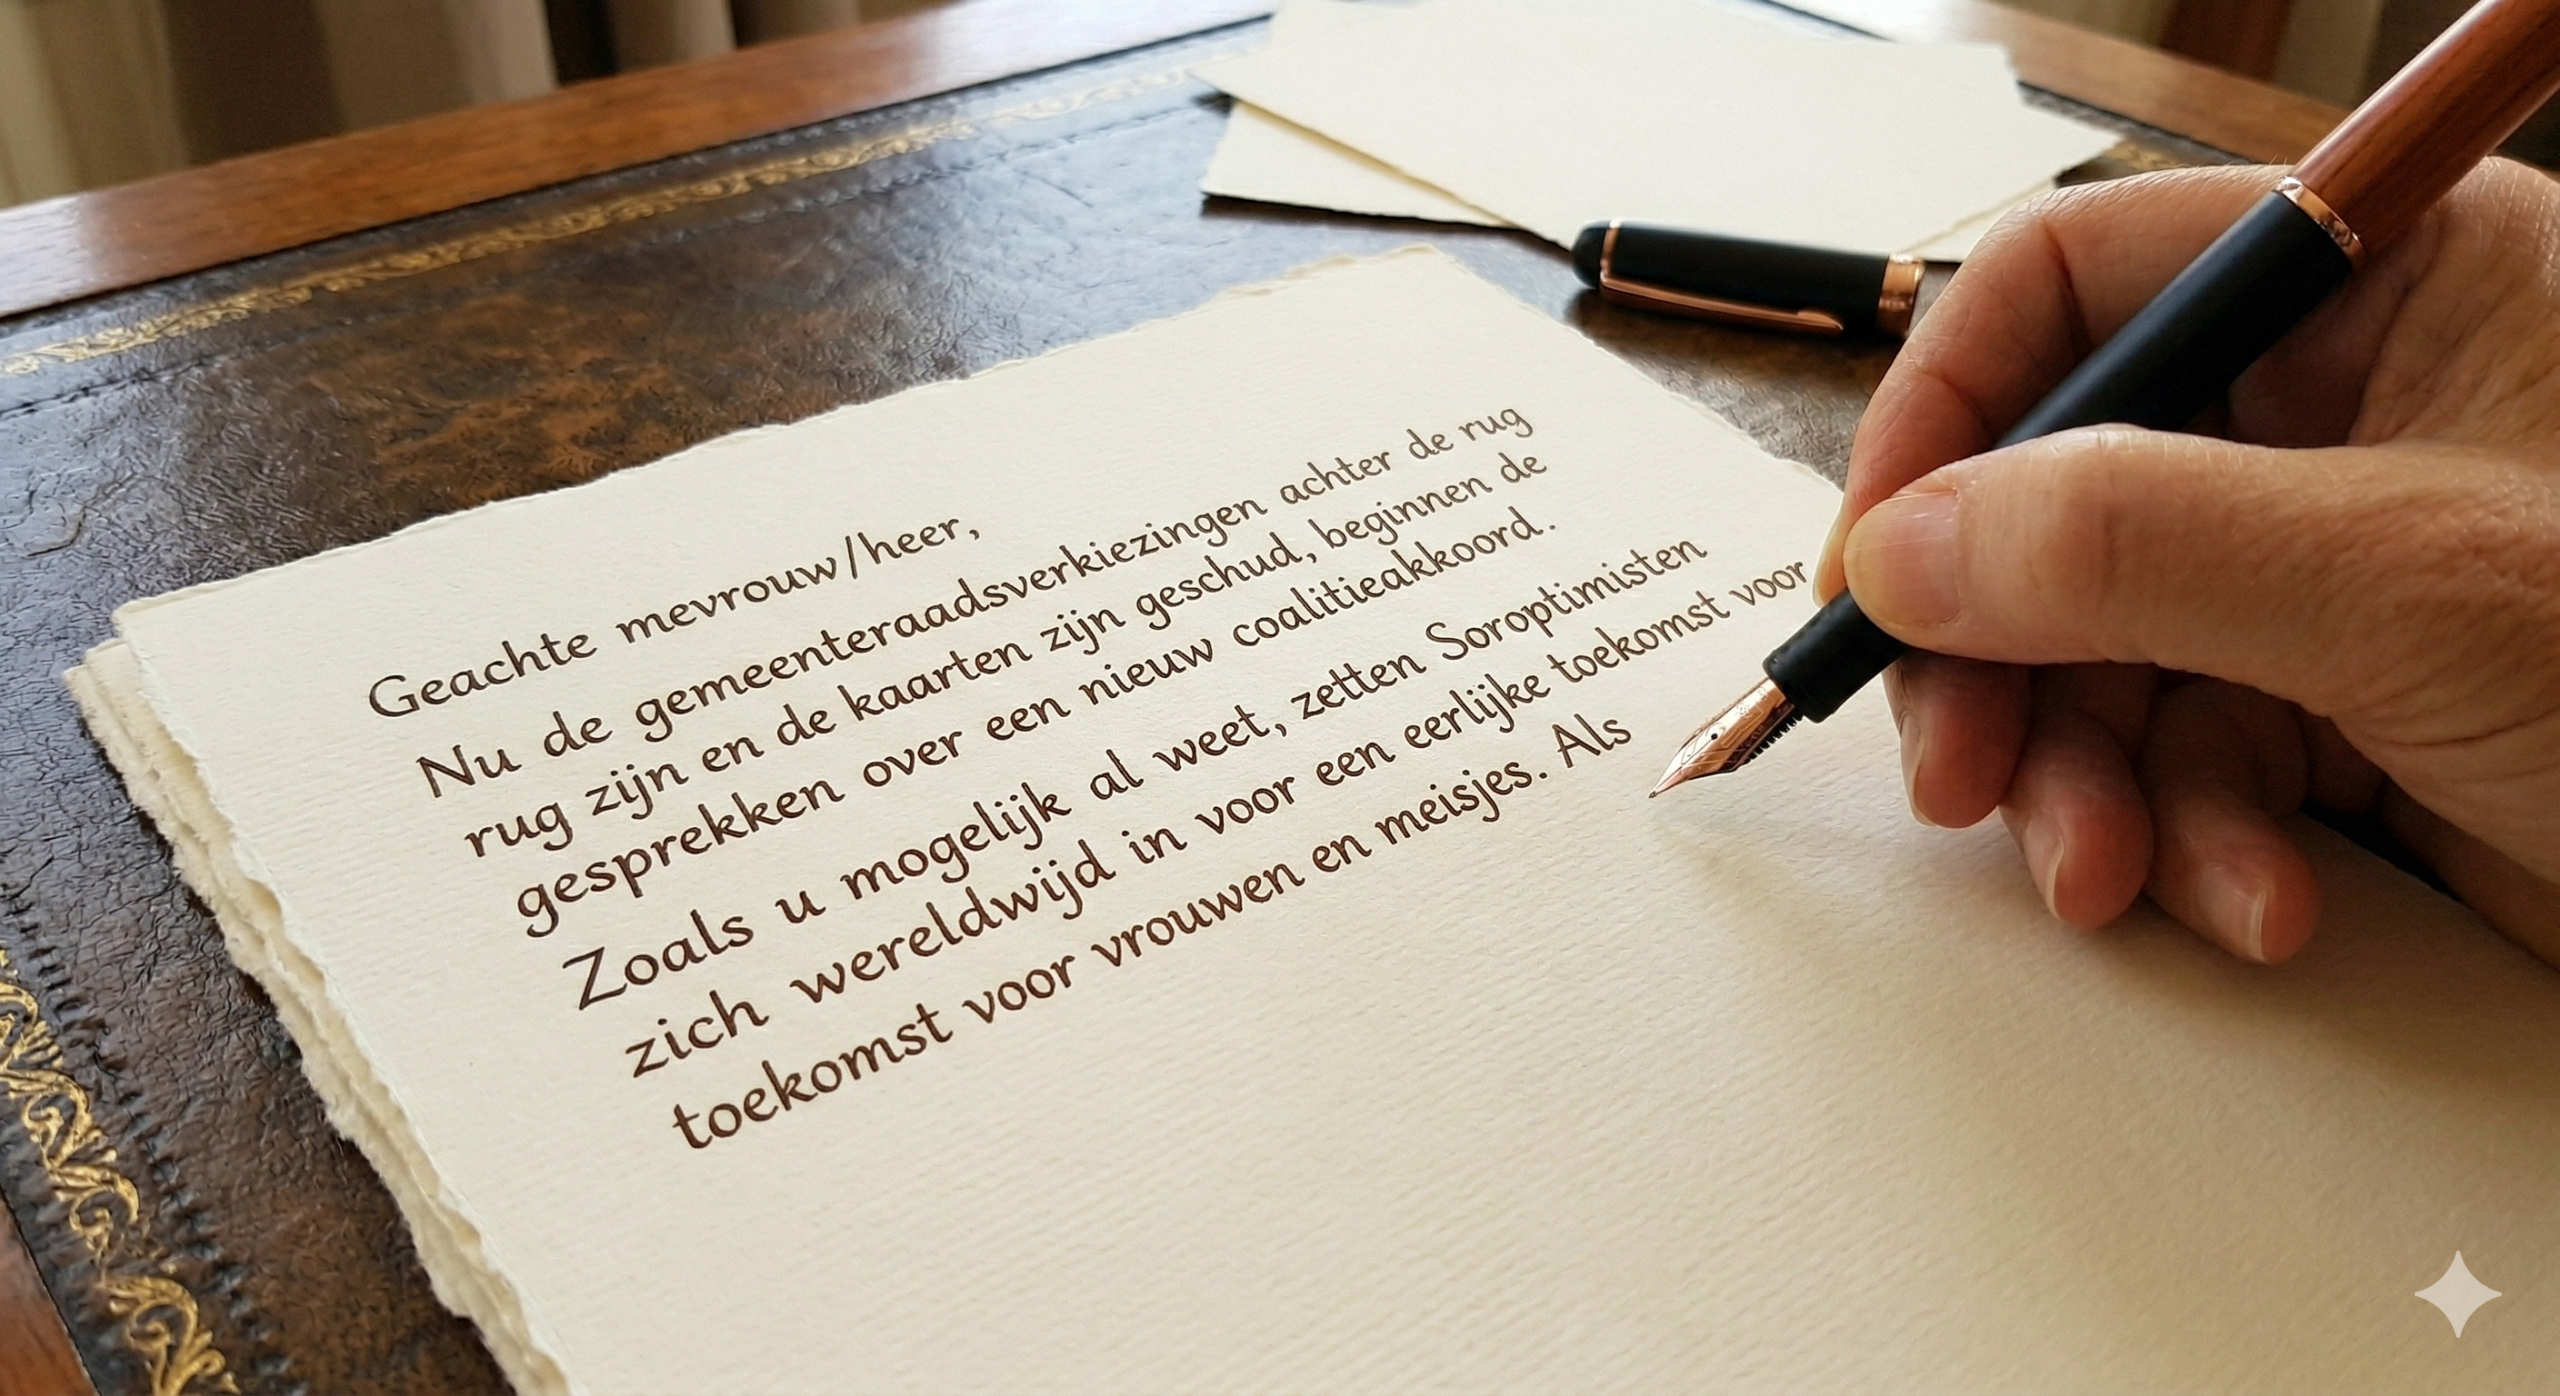 Geachte mevrouw/heer,
Nu de gemeenteraadsverkiezingen achter de rug
rug zijn en de kaarten zijn geschud, beginnen de
gesprekken over een nieuw coalitieakkoord.
Zoals u mogelijk al weet, zetten Soroptimisten
zich wereldwijd in voor een eerlijke toekomst voor
toekomst voor vrouwen en meisjes. Als